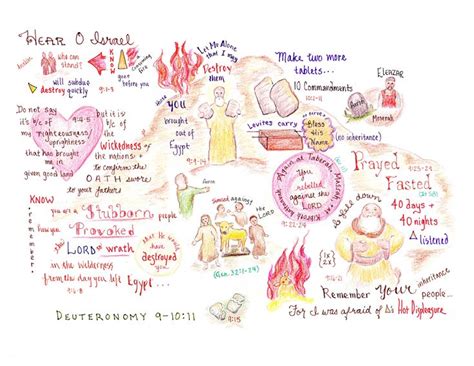 Hear O Israel
who can stand?
KNOW
a consuming fire
goes before you
will subdue
destroy quickly
Let Me Alone that I may
Destroy them
Make two more tablets...
10 Commandments
10:1-11
Eleazar
Aaron
Moserah
Whom you brought out of Egypt
Levites carry
Bless His Name
(no inheritance)
Do not say
it's b/c of
my Righteousness
uprightness
that has brought
me in
given good land
9:4-5
but it is
b/c of the
Wickedness
of the nations &
to confirm the
OATH swore
to your fathers
Again at Taberah, Massah, & at Kibroth hattaavah
You rebelled against the LORD
9:22-24
Prayed
9:25-29
Fasted
& laid down
40 days +
40 nights
listened
KNOW
remember
you are a
Stubborn people
how you
Provoked
the LORD to wrath
in the Wilderness
from the day you left
Egypt...
that He would have
destroyed you...
Aaron
Sinned against the LORD
(Gen. 32:1-24)
{1x 2x}
Remember Your inheritance
people...
For I was afraid of Hot Displeasure
Deuteronomy 9-10:11
9:15